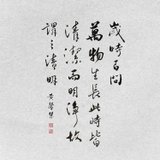 歲時百問
萬物生長此時皆
清潔而明淨故
謂之清明